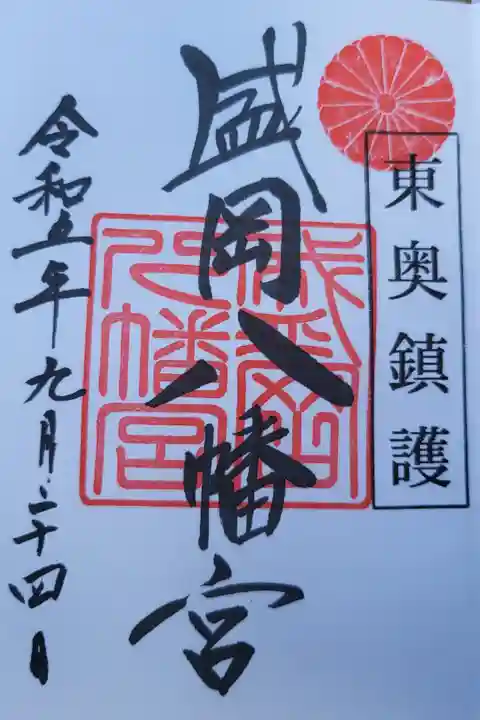 東奥鎮護
盛岡八幡宮
盛岡八幡宮
令和五年九月二十四日